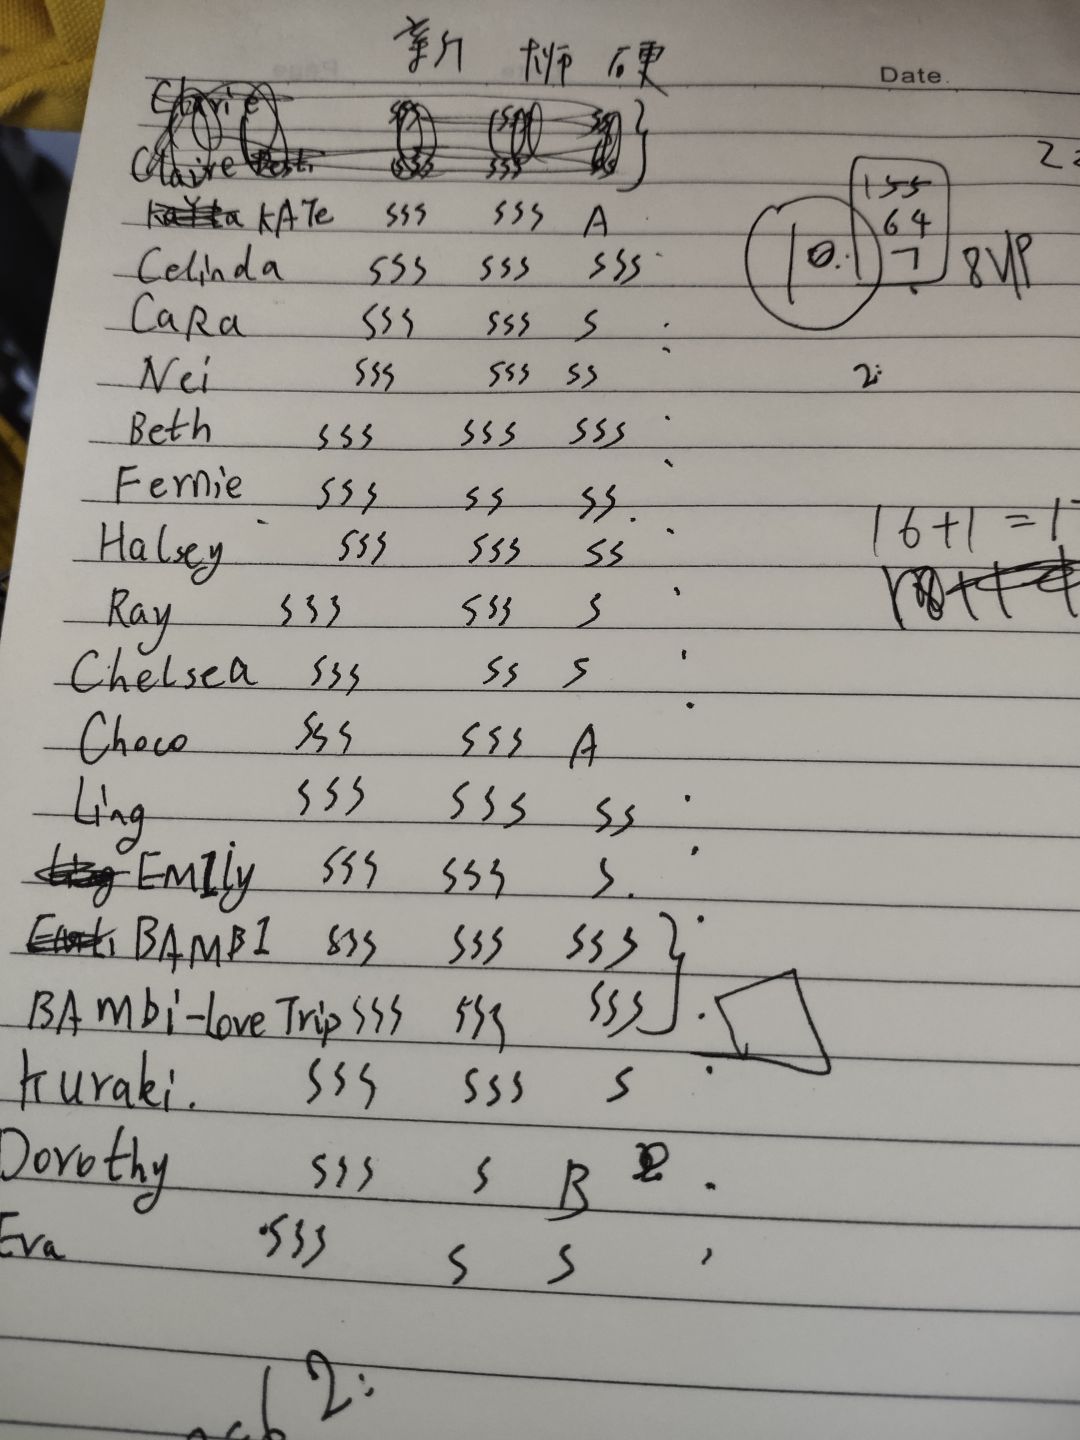 新 柳 硬
Date.
Clarie SSS SSS SSS
Claire SSS SSS SSS
KATe SSS SSS A
155
64
7
10.
8VP
Celinda SSS SSS SSS
CaRa SSS SSS S
Nei SSS SSS SS
2:
Beth SSS SSS SSS
Fernie SSS SS SS.
16+1=17
Halsey SSS SSS SS
Ray SSS SSS S
Chelsea SSS SS S
Choco SSS SSS A
Ling SSS SSS SS
EMIly SSS SSS S.
BAMBI SSS SSS SSS
BAmbi-Love Trip SSS SSS SSS
Kuraki. SSS SSS S
Dorothy SSS S B
Eva SSS S S
2: